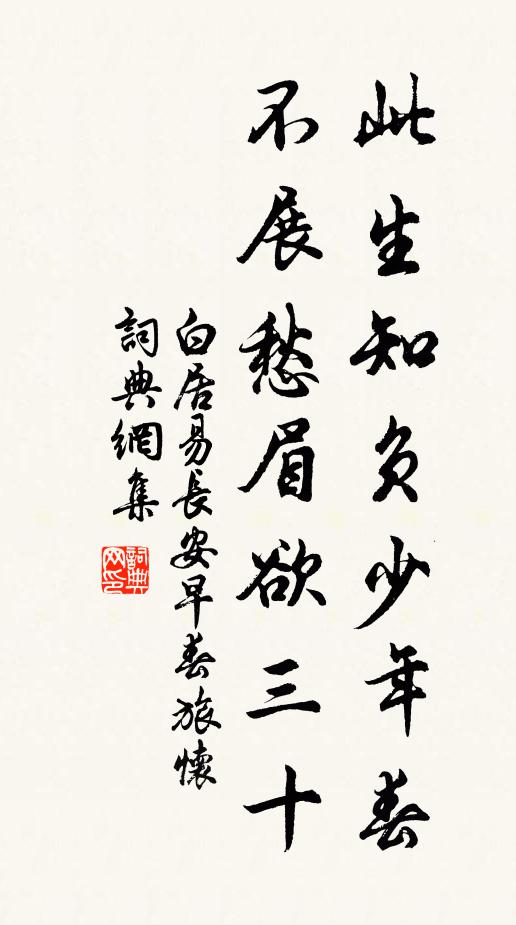 此生知負少年春
不展愁眉欲三十
白居易長安早春旅懷
詞典網集
詞典網印